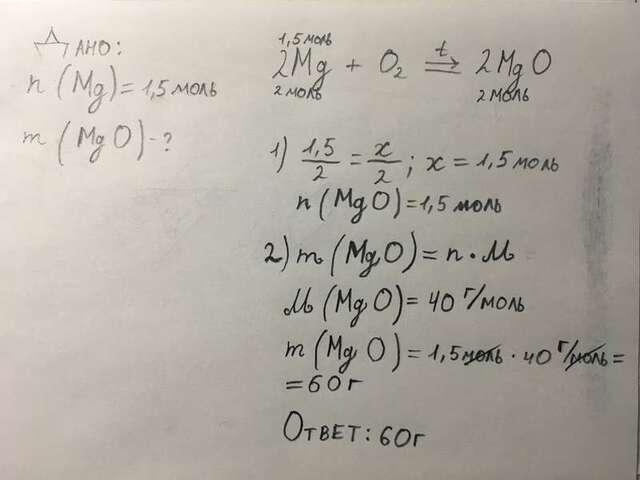 Дано:
n(Mg)=1,5 моль
m(MgO)-?
1,5 моль
2Mg + O₂ =t> 2MgO
2 моль 2 моль
1) 1,5/2 = x/2; x = 1,5 моль
n(MgO)=1,5 моль
2) m(MgO)=n·M
M(MgO)=40 г/моль
m(MgO)=1,5 моль · 40 г/моль =
= 60 г
Ответ: 60 г